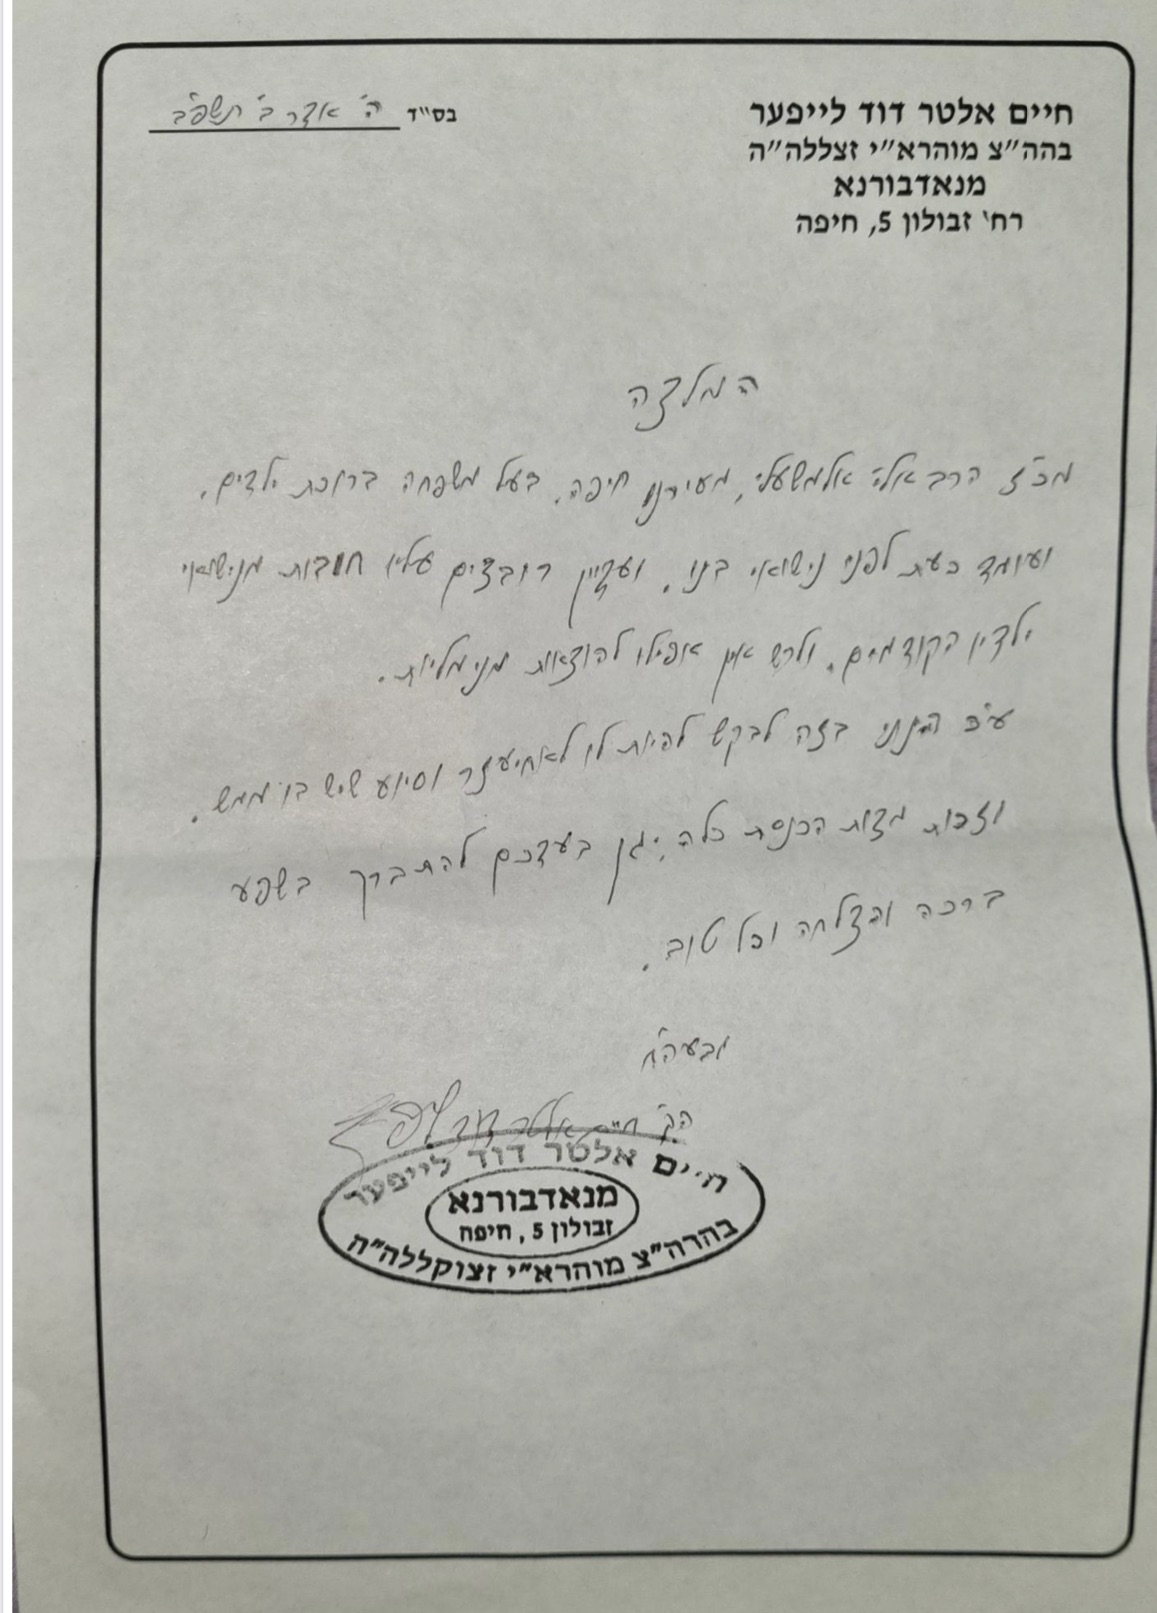 חיים אלטר דוד לייפער
בהה"צ מוהרא"י זצללה"ה
מנאדבורנא
רח' זבולון 5, חיפה
בס"ד ה' אדר ב' תשפ"ב
המלצה
מכ"ז הרב אלי אלמשעלי, מעירנו חיפה. בעל משפחה ברוכת ילדים,
ועומד כעת לפני נישואי בנו. ועדיין רובצים עליו חובות מנישואי
ילדיו הקודמים. ולרש אין אפילו להוצאות מנימליות.
ע"כ הנני בזה לבקש להיות לו לאחיעזר וסיוע שיש בו ממש.
וזכות מצות הכנסת כלה, יגן בעדכם להתברך בשפע
ברכה והצלחה וכל טוב.
ובעה"ח
הק' חיים אלטר דוד לייפער
חיים אלטר דוד לייפער
מנאדבורנא
זבולון 5, חיפה
בהרה"צ מוהרא"י זצוקללה"ה